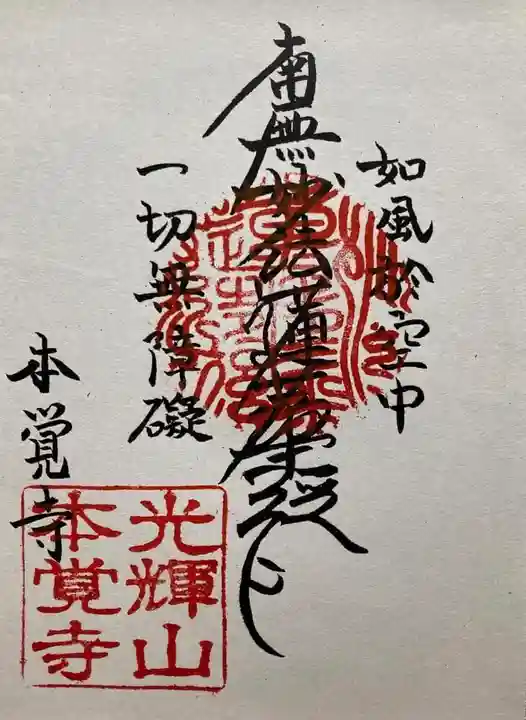 如風於空中
南無妙法蓮華経
一切無障礙
本覚寺
光輝山
本覚寺